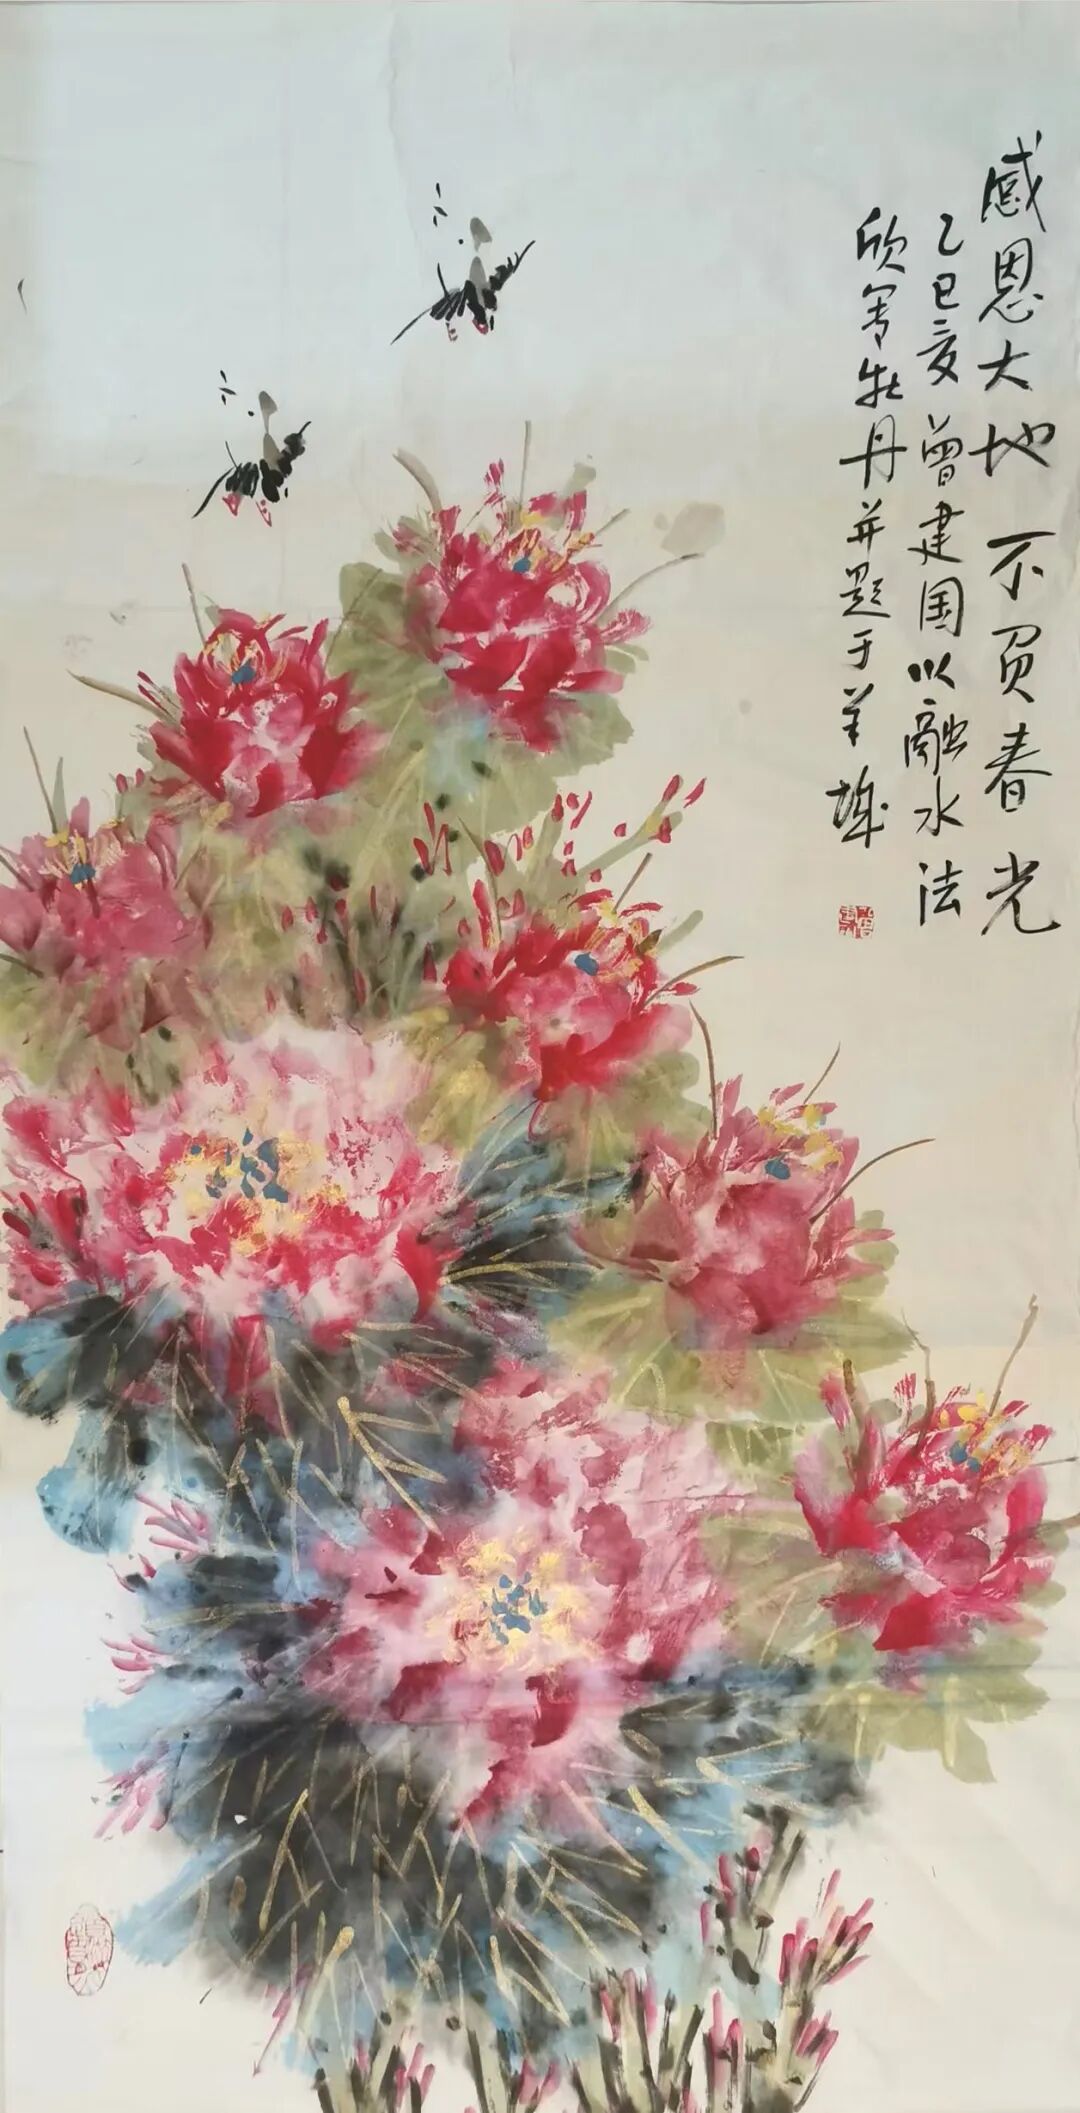 感恩大地不负春光
乙巳夏曾建国以融水法
欣写牡丹并题于羊城